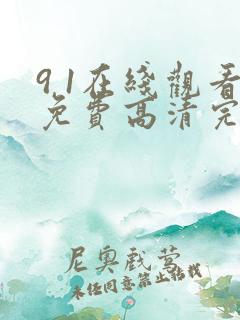 91在綫觀看
免費高清完
尼奥戲萱
未经同意禁止转载